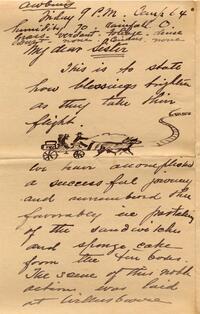 Friday 9 P.M.
humidity 70. rainfall 0.
grass verdant. foliage dense
My dear Sister
This is to state
how blessings brighten
as they take their
flight.
We have accomplished
a successful journey
and remembered thee
favorably in partaking
of the sandwiches
and sponge cake
from the tin box.
The scene of this noble
action, was laid
at Wilkesbarre